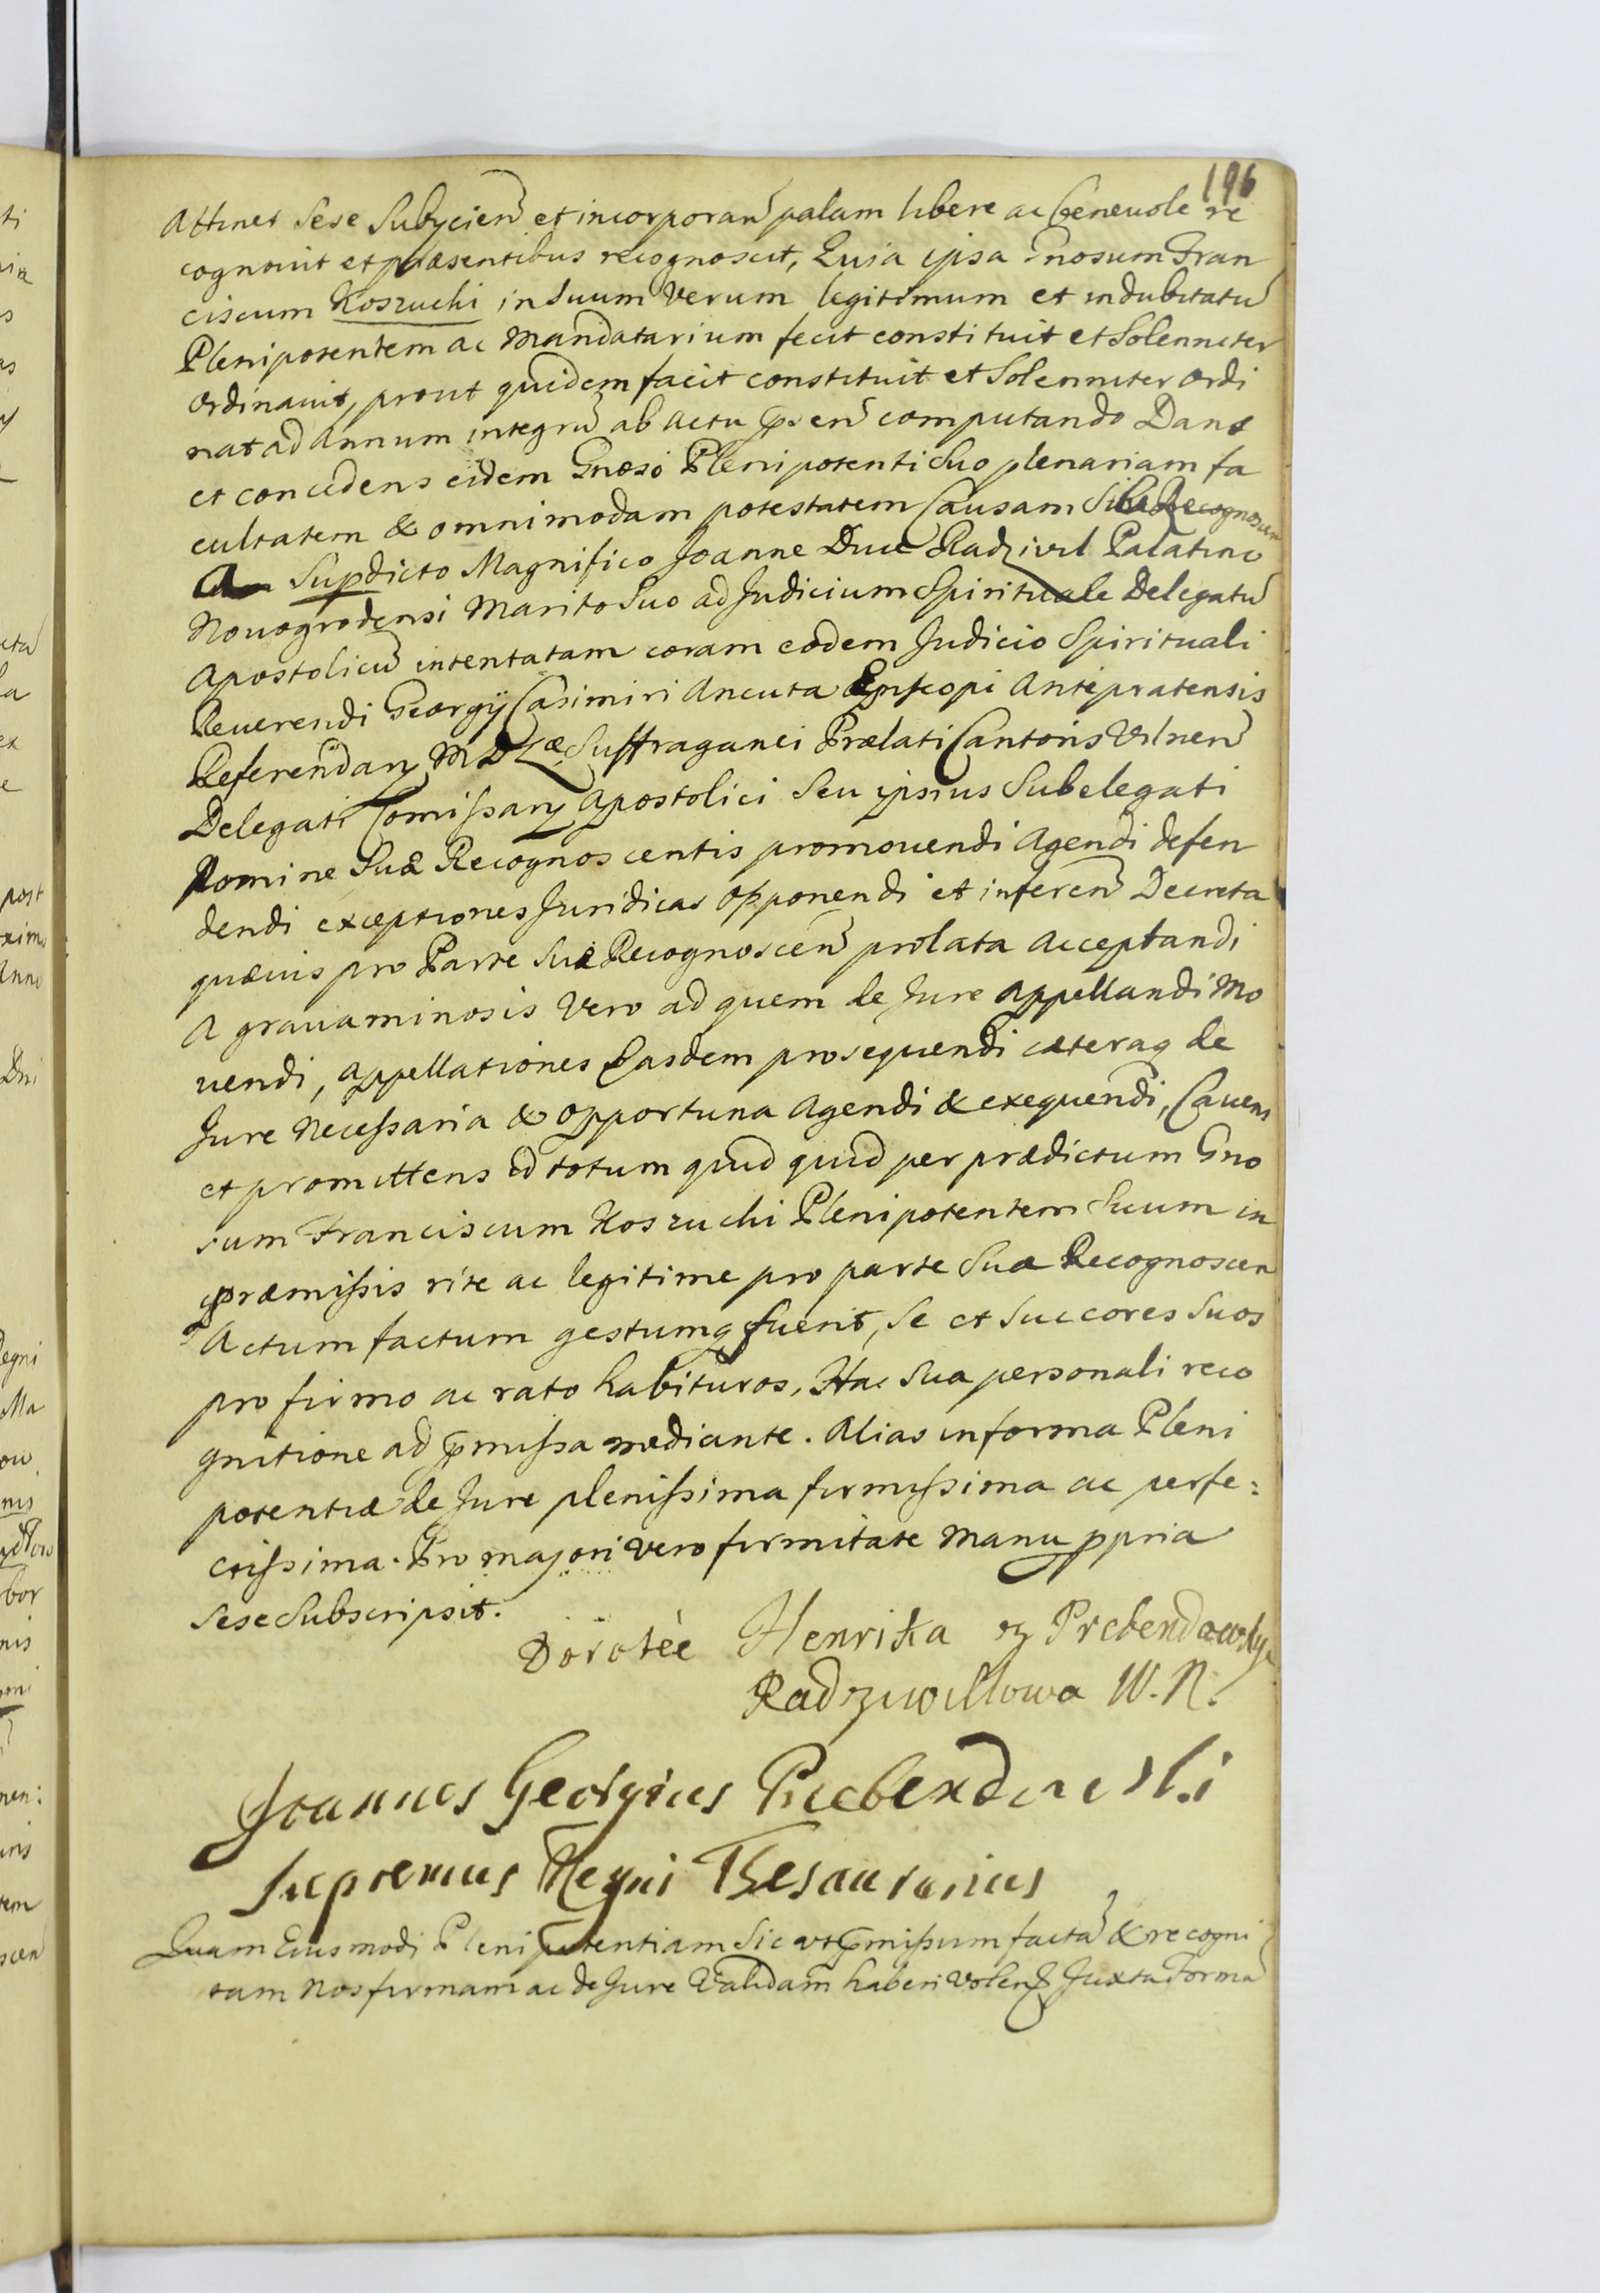 196
Attinet Sese Subycien et incorporan palam libere ac beneuole re
cognouit et præsentibus recognoscit, Quia ipsa Gnosum Fran
ciscum Koszuchi in Suum Verum legitimum et indubitatu
Plenipotentem ac Mandatarium fecit constituit et Solenniter
Ordinauit, prout quidem facit constituit et Solenniter Ordi
nat ad Annum integru ab Actu psen computando Dans
et concedens eidem Gnoso Plenipotenti Suo plenariam fa
cultatem & omnimodam potestatem Causam Sibi Recognoscen
A Supdicto Magnifico Joanne Duce Radzivil Palatino
Nouogrodensi Marito Suo ad Judicium Spirituale Delegatu
Apostolicu intentatam coram eodem Judicio Spirituali
Reuerendi Georgij Casimiri Ancuta Episcopi Antepratensis
Referendary M D L æ Suffraganei Prælati Cantoris Vilnen
Delegati Comissary Apostolici Seu ipsius Subelegati
Nomine Suæ Recognoscentis promouendi Agendi defen
dendi exceptiones Juridicas opponendi et inferen Decreta
quæuis pro Parte Suæ Recognoscen prolata Acceptandi
A grauaminosis Vero ad quem de Jure Appellandi Mo
uendi, Appellationes Easdem prosequendi cæteraq de
Jure Necessaria & Opportuna Agendi & exequendi, Cauens
et promittens id totum quid quid per prædictum Gno
sum Franciscum Koszuchi Plenipotentem Suum in
præmissis rite ac legitime pro parte Suæ Recognoscen
Actum factum gestumq fuerit, Se et Succores Suos
pro firmo ac rato habituros, Hac Sua personali reco
gnitione ad pmissa mediante. Alias in forma Pleni
potentiæ de Jure plenissima firmissima ac perfe:
ctissima. Pro majori vero firmitate Manu ppria
Sese Subscripsit.
Dorotèe Henrika z Prebendowsky
Radziwillowa W. N.
Joannes Georgius Prebendowski
Supremus Regni Thesaurarius
Quam Eiusmodi Plenipotentiam Sic ut pmissum facta & recogni
tam Nos firmam ac de Jure Validam haberi Volen Juxta Forma